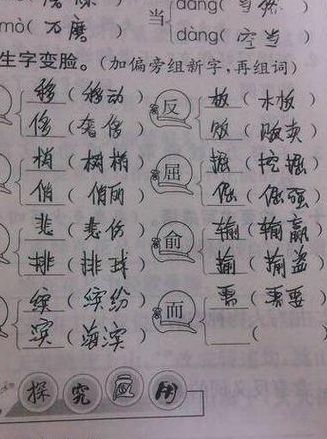 当 dāng( 当然 )
mò( 石磨 ) dàng( 空当 )
生字变脸。(加偏旁组新字,再组词)
移 ( 移动 ) 反 板 ( 木板 )
侈 ( 奢侈 ) 贩 ( 贩卖 )
梢 ( 树梢 ) 屈 掘 ( 挖掘 )
俏 ( 俏丽 ) 倔 ( 倔强 )
悲 ( 悲伤 ) 俞 输 ( 输赢 )
排 ( 排球 ) 偷 ( 偷盗 )
缤 ( 缤纷 ) 而 需 ( 需要 )
滨 ( 海滨 ) (
探 究 用